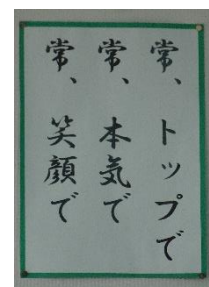 常、トップで
常、本気で
常、笑顔で